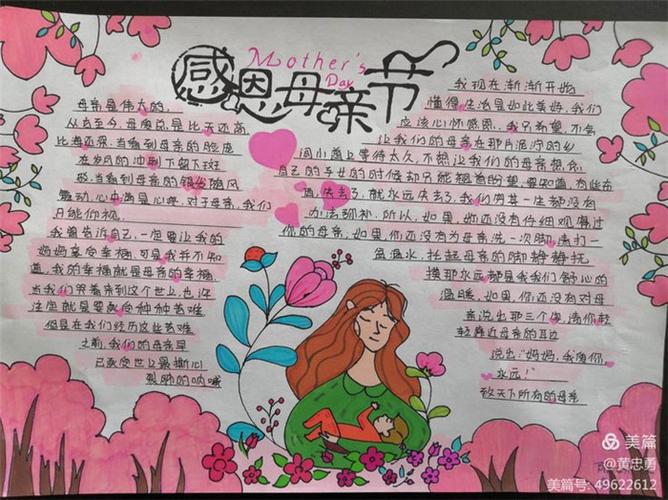 Mother's
Day
感恩母亲节
母亲是伟大的，
从古至今，母爱总是比天还高，
比海还深。当看到母亲的脸庞
在岁月的冲刷下留下斑
驳，当看到母亲的银发随风
飘动，心中满是心疼，对于母亲，我们
只能仰视。
我曾告诉自己，一定要让我的
妈妈享受幸福，可是我并不知
道，我的幸福就是母亲的幸福，
当我们哭着来到这个世上，也许
注定就是要受各种种苦难，
但是在我们经历这些苦难
之前，我们的母亲早
已承受世上最撕心
裂肺的呐喊
我现在渐渐开始
懂得生活是如此美好，我们
应该心怀感恩，我只希望，不会
让我们的母亲在那片泥泞的乡
间小道上等待太久，不想让我们的母亲想念
自己的子女的时候却只能翘首盼望，要知道，有些东
西，失去了，就永远失去了，我们用其一生都没有
办法弥补，所以，如果，你还没有仔细观看过
你的母亲，如果，你还没有为母亲洗一次脚，请打一
盆温水，托起母亲的脚静静抚
摸那永远都是我们舒心的
温暖，如果，你还没有对母
亲说出那三个字，请你轻
轻靠近母亲的耳边
说出："妈妈，我爱你，
永远！"
致天下所有的母亲
美篇
@黄忠勇
美篇号: 49622612